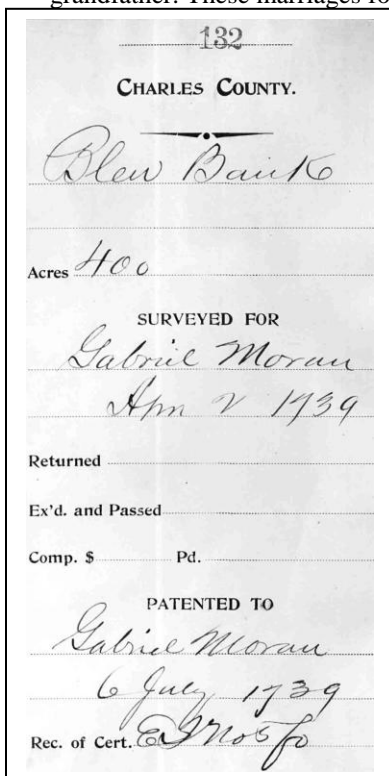 grandfather. These marriages fo
132
CHARLES COUNTY.
Blew Bank
Acres 400
SURVEYED FOR
Gabriel Moran
Apr 2 1739
Returned
Ex'd. and Passed
Comp. $ Pd.
PATENTED TO
Gabriel Moran
6 July 1739
Rec. of Cert. EI No 5